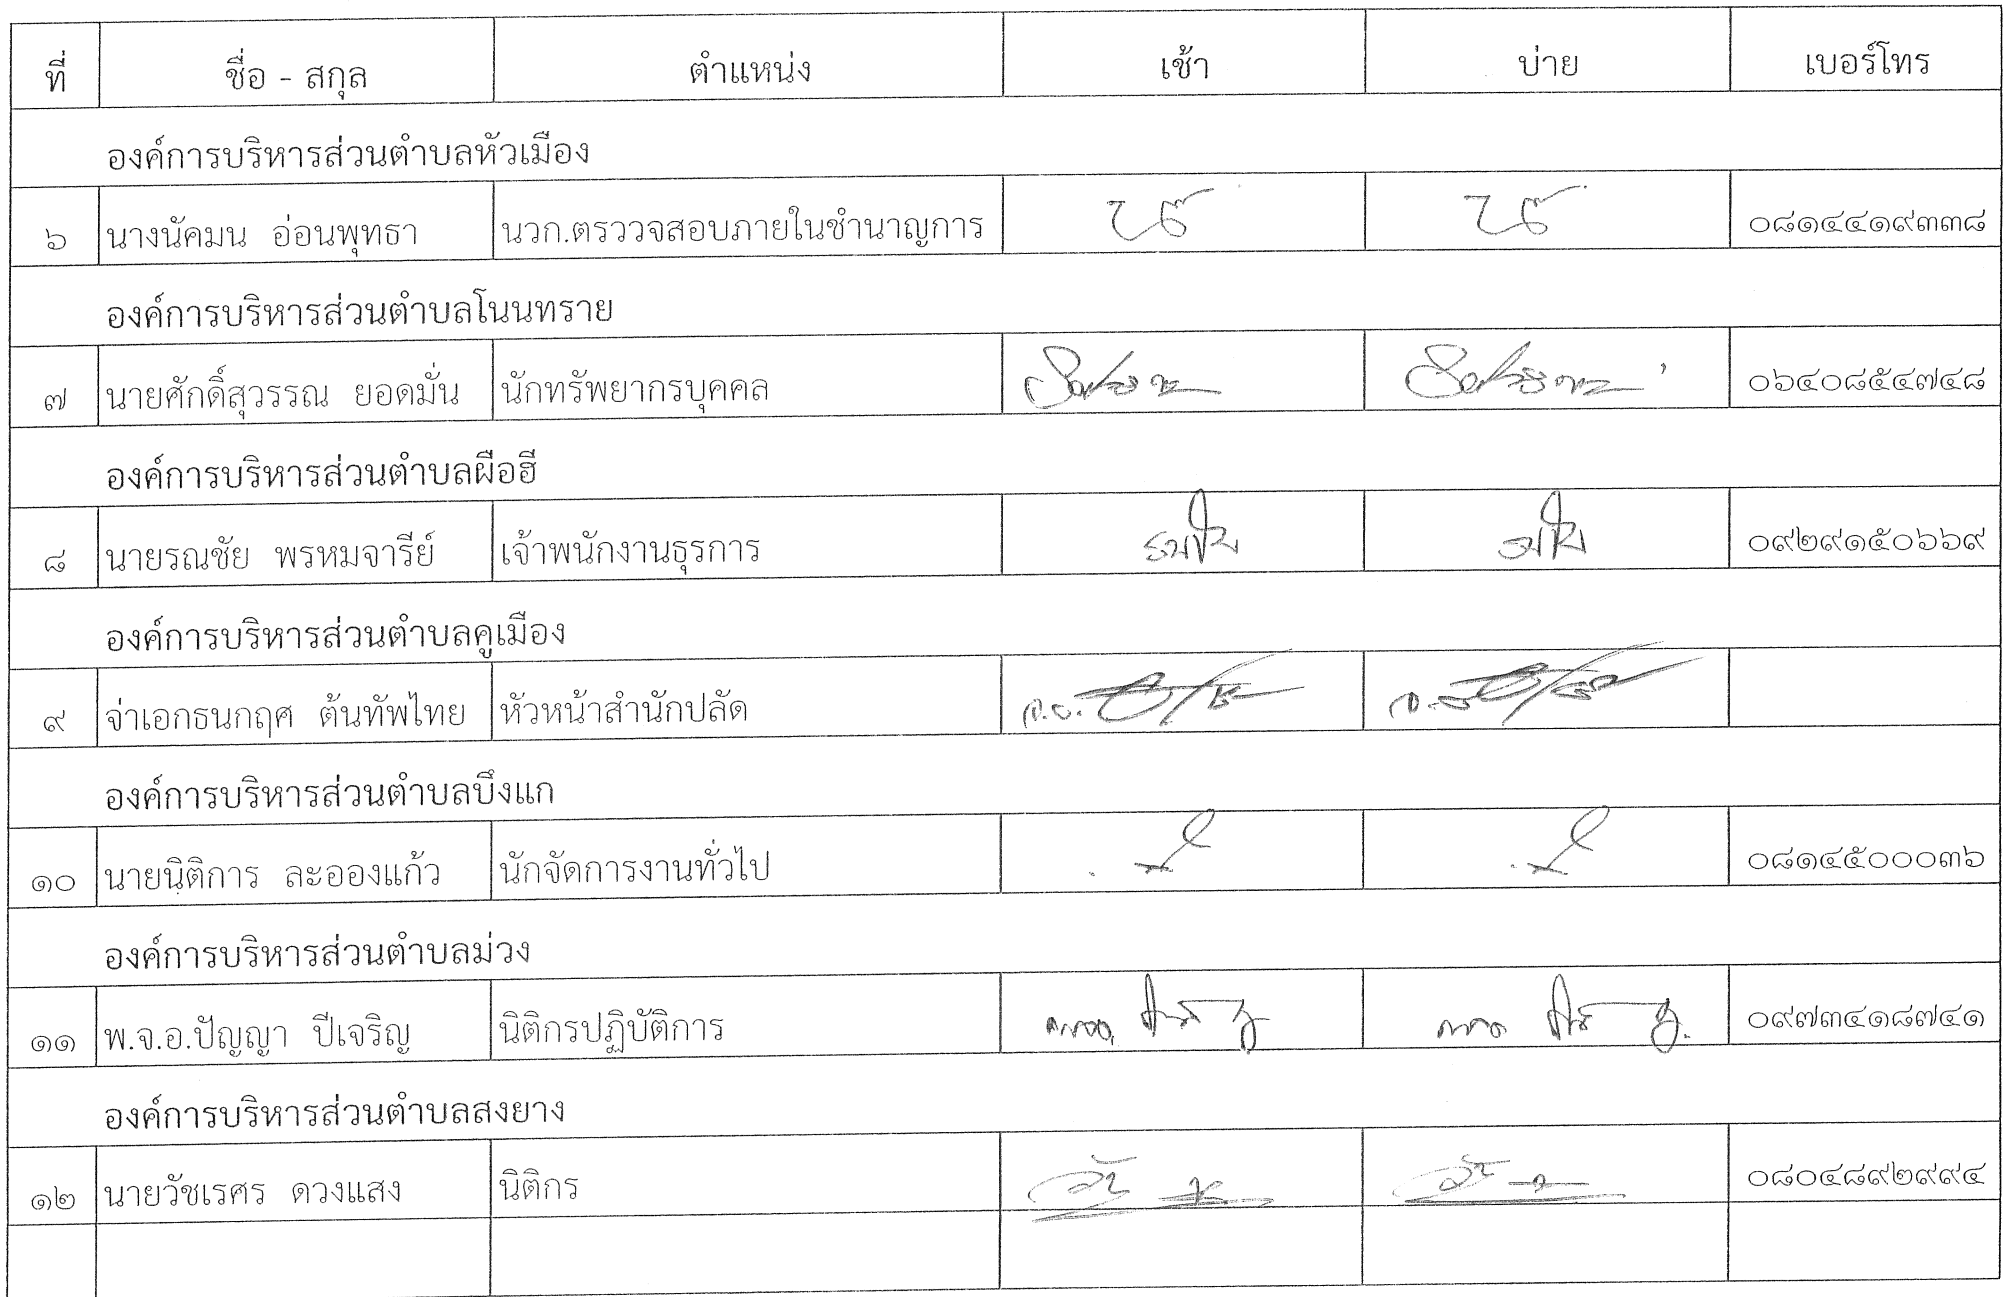 ที่ ชื่อ - สกุล ตำแหน่ง เช้า บ่าย เบอร์โทร
องค์การบริหารส่วนตำบลหัวเมือง
๖ นางนัคมน อ่อนพุทธา นวก.ตรววจสอบภายในชำนาญการ ๐๘๑๔๔๑๙๓๓๘
องค์การบริหารส่วนตำบลโนนทราย
๗ นายศักดิ์สุวรรณ ยอดมั่น นักทรัพยากรบุคคล ๐๖๔๐๘๕๔๗๔๘
องค์การบริหารส่วนตำบลผือฮี
๘ นายรณชัย พรหมจารีย์ เจ้าพนักงานธุรการ ๐๙๒๙๑๕๐๖๖๙
องค์การบริหารส่วนตำบลคูเมือง
๙ จ่าเอกธนกฤศ ต้นทัพไทย หัวหน้าสำนักปลัด
องค์การบริหารส่วนตำบลบึงแก
๑๐ นายนิติการ ละอองแก้ว นักจัดการงานทั่วไป ๐๘๑๔๕๐๐๐๓๖
องค์การบริหารส่วนตำบลม่วง
๑๑ พ.จ.อ.ปัญญา ปีเจริญ นิติกรปฏิบัติการ ๐๙๗๓๔๑๘๗๔๑
องค์การบริหารส่วนตำบลสงยาง
๑๒ นายวัชเรศร ดวงแสง นิติกร ๐๘๐๔๘๙๒๙๙๔